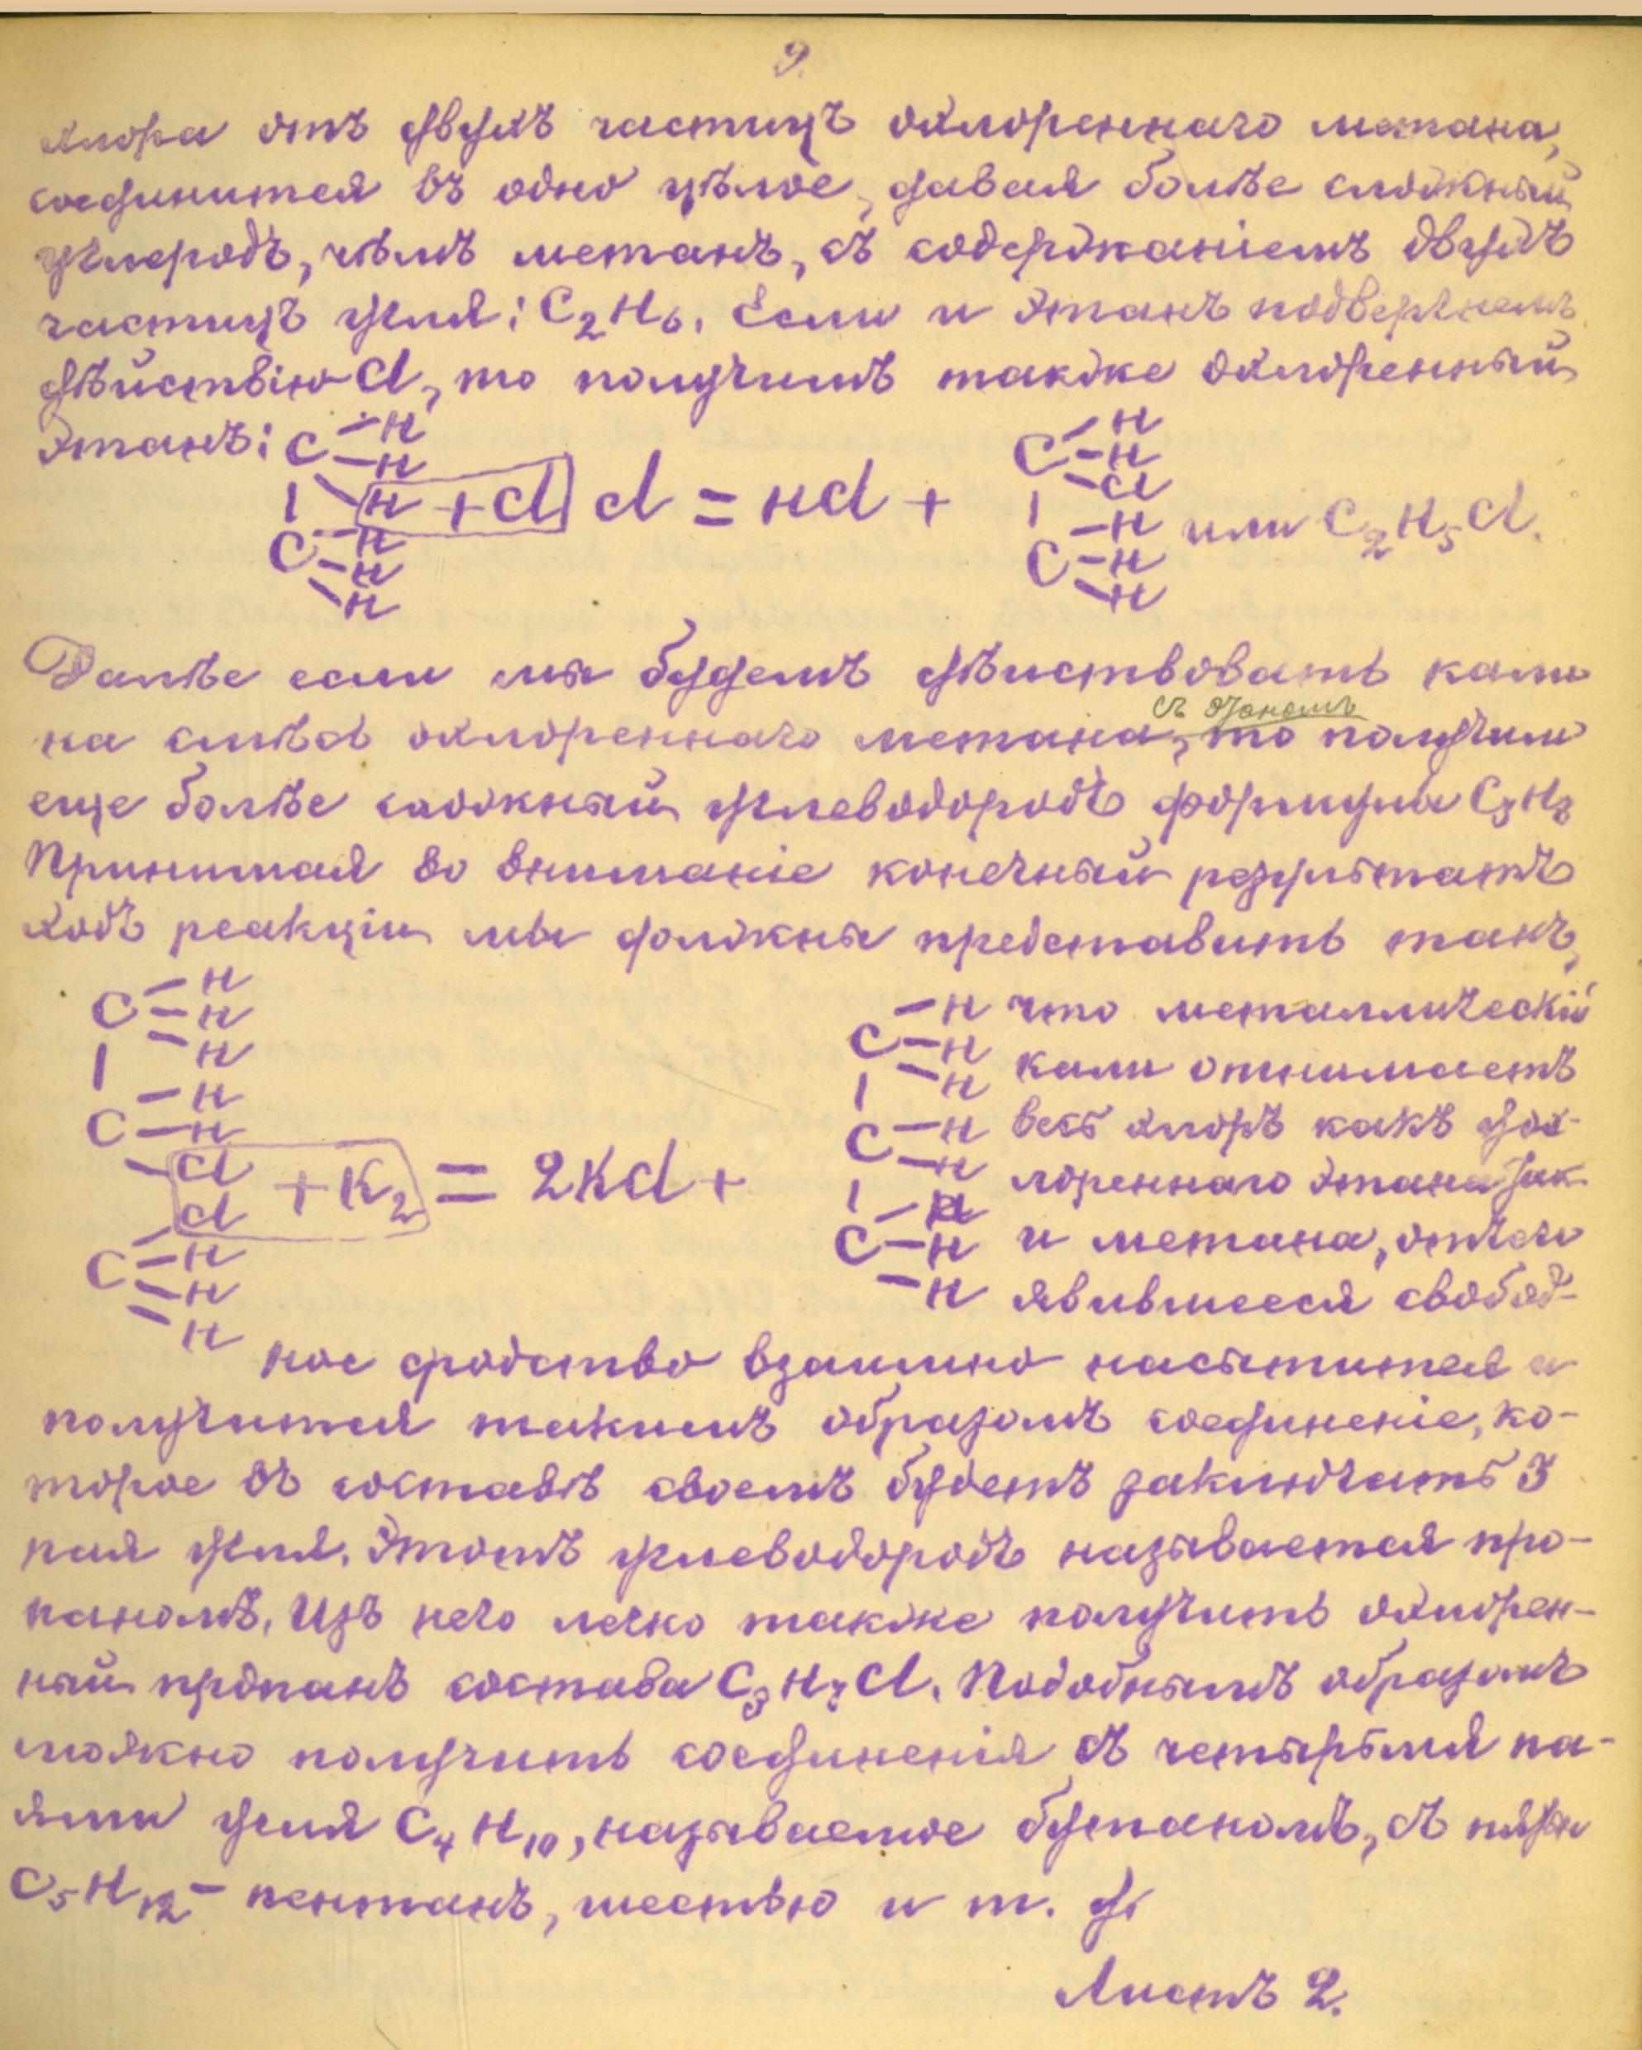 9.
хлора отъ двухъ частицъ охлореннаго метана,
соединится въ одно цѣлое, давая болѣе сложный
углеродъ, чѣмъ метанъ, съ содержаніемъ двухъ
частицъ угля: C2H6. Если и этанъ подвергнемъ
дѣйствію Cl, то получимъ также охлоренный
этанъ: C – H
– H
| H + Cl Cl = HCl +
C – H
– H
– H
C – H
– H
– Cl
|
C – H
– H
– H
или C2H5Cl.
Далѣе если мы будемъ дѣйствовать кали
съ этаномъ
на смѣсь охлореннаго метана, то получим
еще болѣе сложный углеводородъ формулы C3H8
Принимая во вниманіе конечный результатъ
ходъ реакціи мы должны представить такъ,
C – H
– H
– H
|
C – H
– H
– Cl
+ K2 = 2KCl +
Cl
C – H
– H
– H
C – H
– H
– H
|
C – H
– H
|
C – H
– H
– H
что металлическій
кали отнимаетъ
весь хлоръ какъ дох-
лореннаго этана так
и метана, отчего
явившееся свобод-
ное сродство взаимно насытится и
получится такимъ образомъ соединеніе, ко-
торое въ составѣ своемъ будетъ заключать 3
пая угля. Этотъ углеводородъ называется про-
паномъ. Изъ него легко также получить охлорен-
ный пропанъ состава C3H7Cl. Подобнымъ образомъ
можно получить соединенія съ четырьмя па-
ями угля C4H10, называемое бутаномъ, съ пятью
C5H12 – пентанъ, шестью и т. д.
Листъ 2.